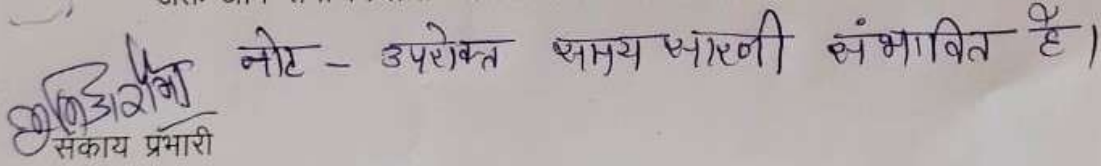 नोट - उपरोक्त समय सारनी संभावित है।
संकाय प्रभारी